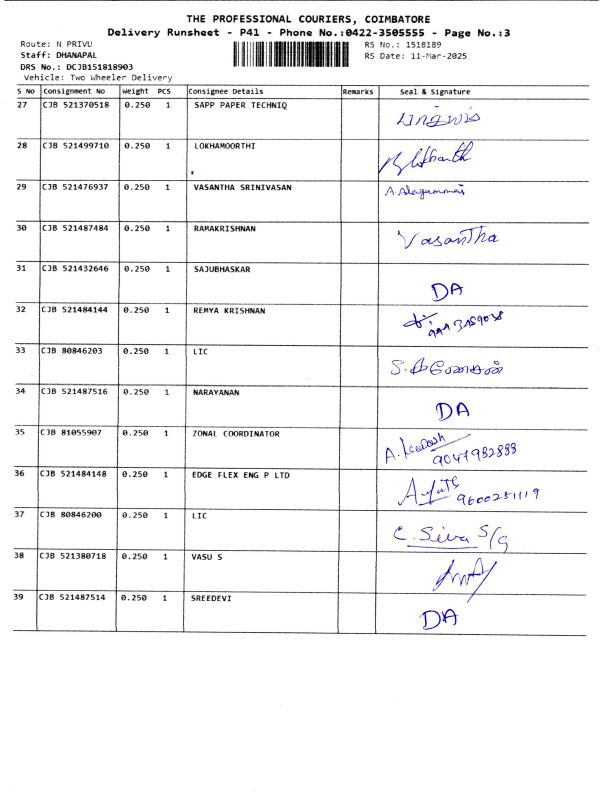 THE PROFESSIONAL COURIERS, COIMBATORE
Delivery Runsheet - P41 - Phone No.:0422-3505555 - Page No.:3
Route: N PRIVU RS No.: 1518189
Staff: DHANAPAL RS Date: 11-Mar-2025
DRS No.: DCJB151818903
Vehicle: Two Wheeler Delivery
S No Consignment No Weight PCS Consignee Details Remarks Seal & Signature
27 CJB 521370518 0.250 1 SAPP PAPER TECHNIQ
28 CJB 521499710 0.250 1 LOKHAMOORTHI
29 CJB 521476937 0.250 1 VASANTHA SRINIVASAN A. Alagammai
30 CJB 521487484 0.250 1 RAMAKRISHNAN Vasantha
31 CJB 521432646 0.250 1 SAJUBHASKAR DA
32 CJB 521484144 0.250 1 REMYA KRISHNAN
33 CJB 80846203 0.250 1 LIC
34 CJB 521487516 0.250 1 NARAYANAN DA
35 CJB 81055907 0.250 1 ZONAL COORDINATOR A. 9047982888
36 CJB 521484148 0.250 1 EDGE FLEX ENG P LTD 9600251119
37 CJB 80846200 0.250 1 LIC C. Siva S/G
38 CJB 521380718 0.250 1 VASU S
39 CJB 521487514 0.250 1 SREEDEVI DA